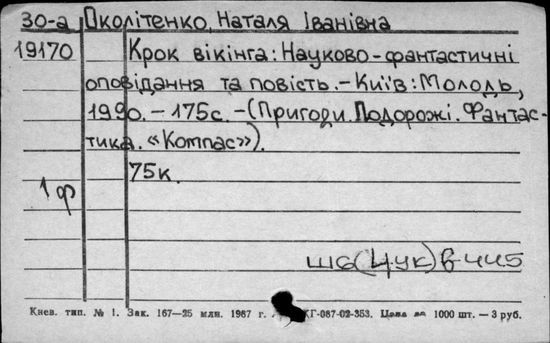 30-а Околітенко, Наталя Іванівна
19170 Крок вікінга: Науково-фантастичні
оповідання та повість.-Київ: Молодь,
1990.-175с.-(Пригоди. Подорожі. Фантас-
тика. «Компас»).
75к.
1ф
ш6(4Ук) в 445
Киев. тип. № 1. Зак. 167—25 млн. 1987 г. КГ-087-02-353. Цена за 1000 шт. — 3 руб.